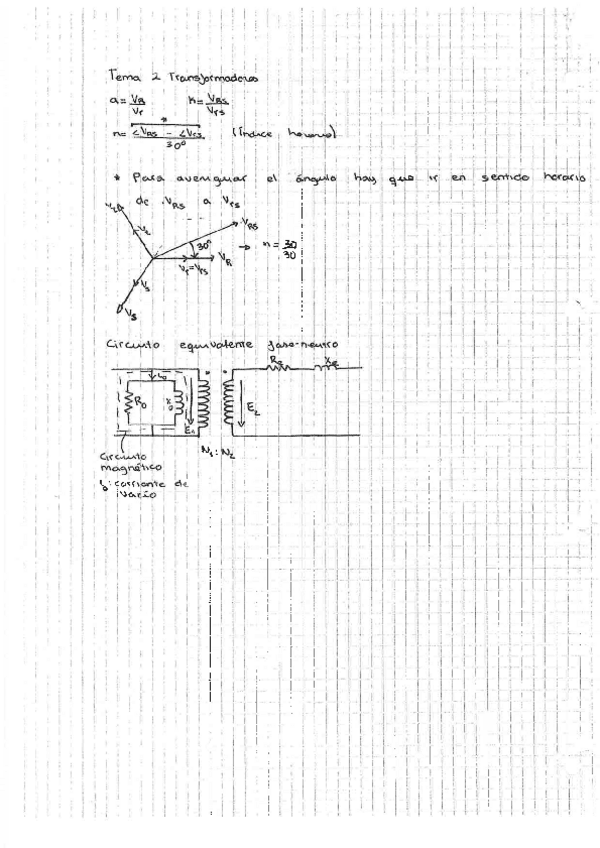 Tema 2 Transformadores
a = V_R / V_r   K = V_RS / V_rs
n = ∠V_RS - ∠V_rs / 30° (Índice horario)
* Para averiguar el ángulo hay que ir en sentido horario
de V_RS a V_rs
V_t
V_RS
30°
→ n = 30/30
V_r = V_rs V_R
V_s
V_S
Circuito equivalente fase-neutro
R_e X_e
i_0
R_0 X_0 E_1 E_2
N_1 : N_2
Circuito
magnético
i_0: corriente de
vacío